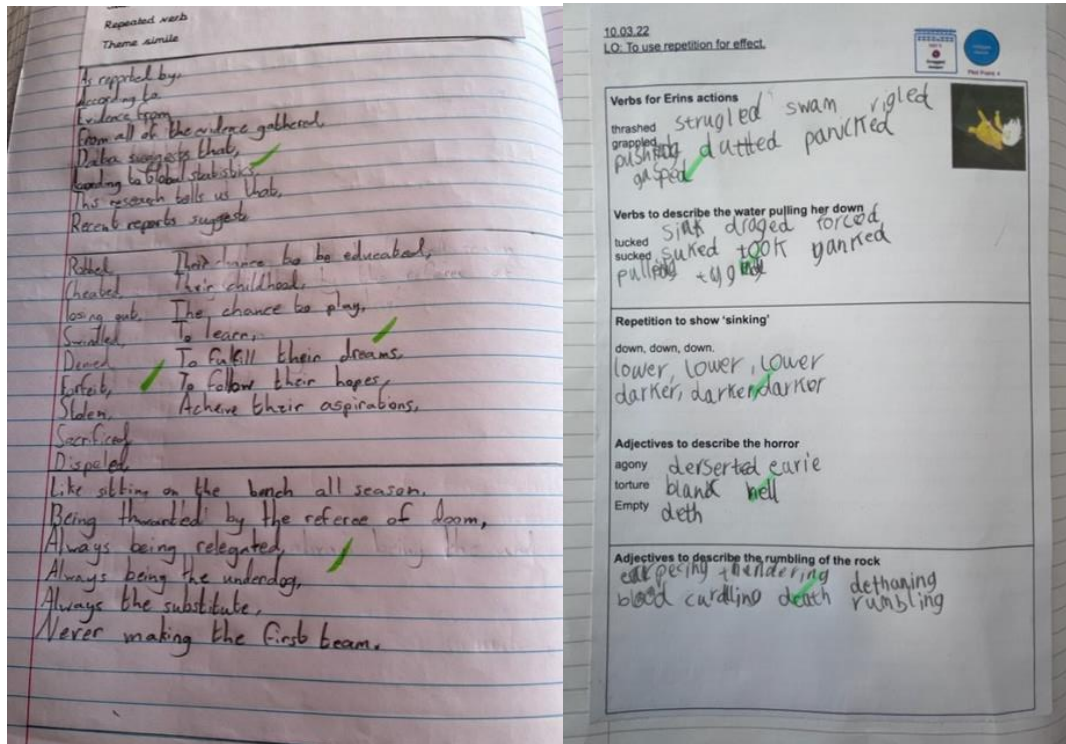 Repeated verb
Theme simile
As reported by,
According to
Evidence from
From all of the evidence gathered
Data suggests that,
According to Global statistics,
This research tells us that,
Recent reports suggest
Robbed Their chance to be educated,
Cheated Their childhood,
losing out, The chance to play,
Swindled, To learn,
Denied To fulfill their dreams,
Forfeit, To follow their hopes,
Stolen Acheive their aspirations,
Sacrificed
Dispeled
Like sitting on the bench all season.
Being thwarted by the referee of doom,
Always being relegated,
Always being the underdog,
Always the substitute,
Never making the first team.
10.03.22
LO: To use repetition for effect.
Plot Point 4
Verbs for Erins actions
thrashed strugled swam rigled
grappled
panicked
gasped
Verbs to describe the water pulling her down
sink draged forced
tucked
sucked suked took yanked
Repetition to show 'sinking'
down, down, down.
lower, lower, lower
darker, darker, darker
Adjectives to describe the horror
agony derserted earie
torture blank hell
Empty deth
Adjectives to describe the rumbling of the rock
thendering dethaning
blood curdling death rumbling